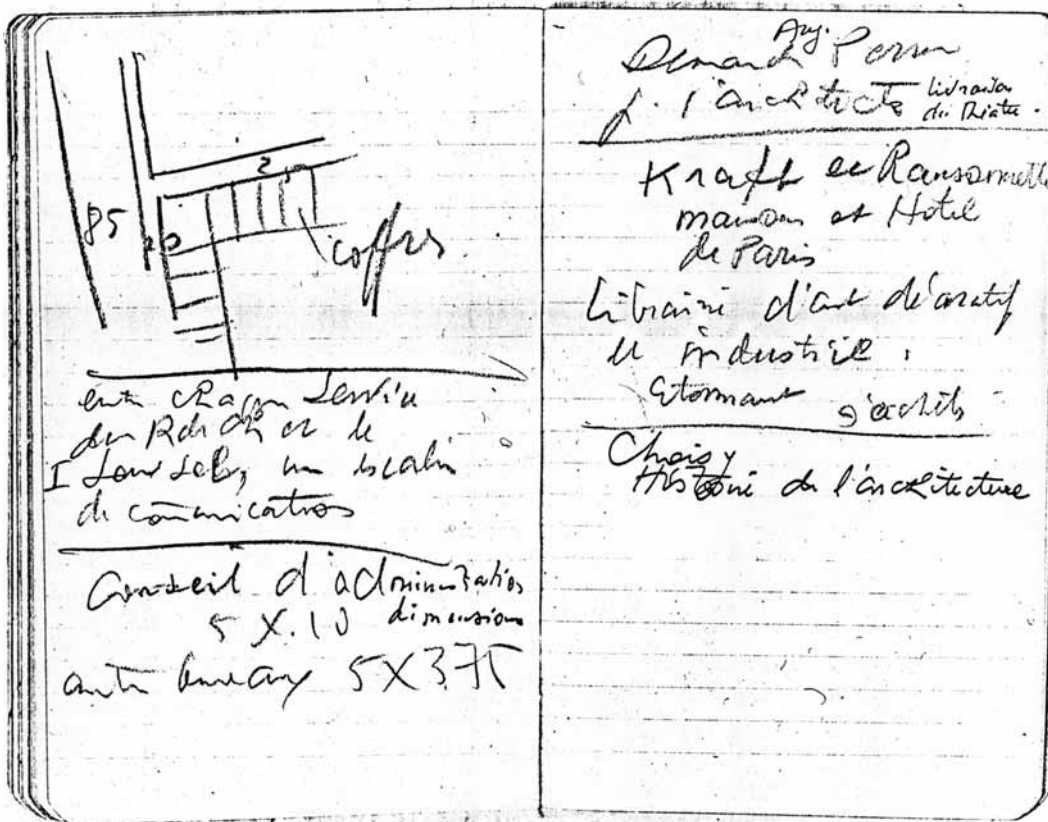 85
20
2
coffres
entre chaque Service
du R de Ch et le
I Sous sol, un escalier
de comunication
Conseil d'administration
5 X 10 dimensions
autre bureaux 5 X 3.75
Aug.
Demander Perret
p. l'architecte librairie
du Théatre.
Kraft et Ransonnette
maisons et Hotel
de Paris
Librairie d'art décoratif
et industriel.
Etonnant
Choisy
Histoire de l'architecture